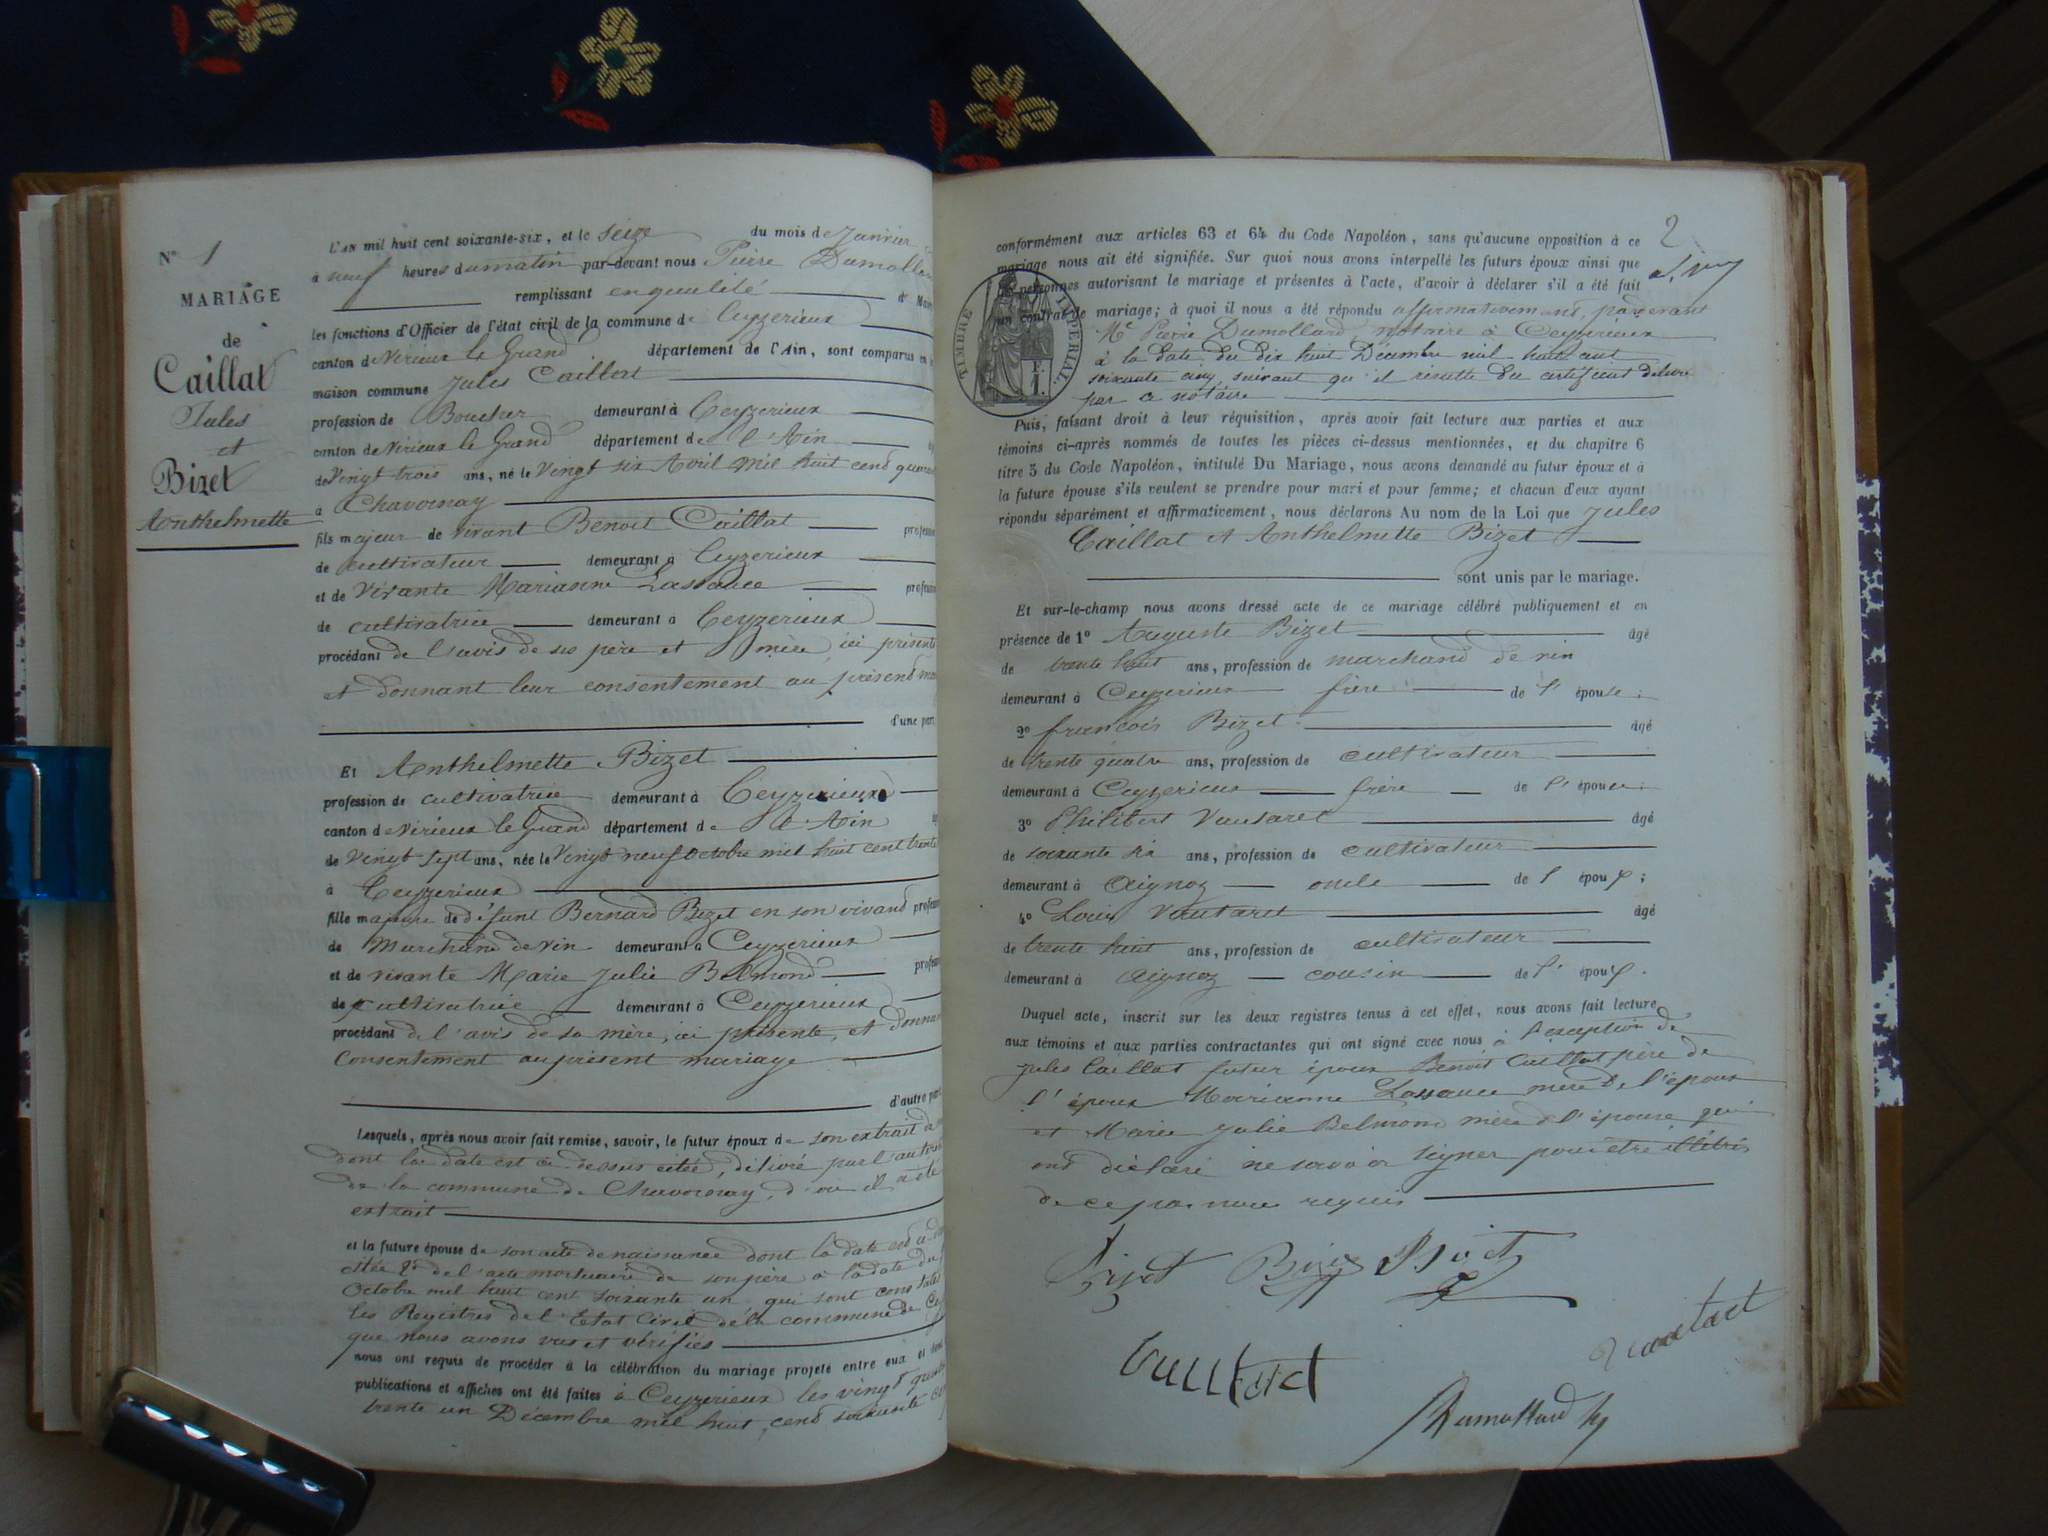 N° 1
MARIAGE
de
Caillat
Jules
et
Bizet
Anthelmette
L'AN mil huit cent soixante-six, et le seize du mois de Janvier
à neuf heures du matin par-devant nous Pierre Dumollard
remplissant en qualité de Maire
les fonctions d'Officier de l'état civil de la commune de Ceyzerieux
canton de Virieux le Grand département de l'Ain, sont comparus en la
maison commune Jules Caillat
profession de Boucher demeurant à Ceyzerieux
canton de Virieux le Grand département de l'Ain
de Vingt trois ans, né le Vingt six Avril mil huit cent quarante
à Chavornay
fils majeur de vivant Benoit Caillat profession
de cultivateur demeurant à Ceyzerieux
et de Vivante Marianne Lassauce profession
de cultivatrice demeurant à Ceyzerieux
procédant de l'avis de ses père et mère, ici présents
et donnant leur consentement au présent
d'une part.
Et Anthelmette Bizet
profession de cultivatrice demeurant à Ceyzerieux
canton de Virieux le Grand département de l'Ain
de Vingt-sept ans, née le Vingt neuf octobre mil huit cent trente
à Ceyzerieux
fille majeure de défunt Bernard Bizet en son vivant profession
de Marchand de vin demeurant à Ceyzerieux
et de vivante Marie Julie Belmond profession
de cultivatrice demeurant à Ceyzerieux
procédant de l'avis de sa mère, ici présente, et donnant
Consentement au présent mariage
d'autre part.
Lesquels, après nous avoir fait remise, savoir, le futur époux de son extrait
dont la date est ci-dessus citée, délivré par l'autorité
de la commune de Chavornay, d'où il a été
extrait
et la future épouse de son acte de naissance dont la date est ci-dessus
citée 2° de l'acte mortuaire de son père à la date du
Octobre mil huit cent soixante un qui sont constatés
les Registres de l'Etat Civil de la commune de
que nous avons vus et vérifiés
nous ont requis de procéder à la célébration du mariage projeté entre eux et dont
publications et affiches ont été faites à Ceyzerieux les vingt quatre
trente un Décembre mil huit cent soixante cinq
2
conformément aux articles 63 et 64 du Code Napoléon, sans qu'aucune opposition à ce
mariage nous ait été signifiée. Sur quoi nous avons interpellé les futurs époux ainsi que
les personnes autorisant le mariage et présentes à l'acte, d'avoir à déclarer s'il a été fait
un contrat de mariage; à quoi il nous a été répondu affirmativement, pardevant
TIMBRE IMPÉRIAL
1 F.
Me Pierre Dumollard notaire à Ceyzerieux
à la date du dix huit Décembre mil huit cent
soixante cinq suivant qu'il résulte du certificat délivré
par ce notaire
Puis, faisant droit à leur réquisition, après avoir fait lecture aux parties et aux
témoins ci-après nommés de toutes les pièces ci-dessus mentionnées, et du chapitre 6
titre 5 du Code Napoléon, intitulé Du Mariage, nous avons demandé au futur époux et à
la future épouse s'ils veulent se prendre pour mari et pour femme; et chacun d'eux ayant
répondu séparément et affirmativement, nous déclarons Au nom de la Loi que Jules
Caillat et Anthelmette Bizet
sont unis par le mariage.
Et sur-le-champ nous avons dressé acte de ce mariage célébré publiquement et en
présence de 1° Auguste Bizet âgé
de trente huit ans, profession de marchand de vin
demeurant à Ceyzerieux frère de l'épouse;
2° françois Bizet âgé
de trente quatre ans, profession de cultivateur
demeurant à Ceyzerieux frère de l'épouse;
3° Philibert Vautaret âgé
de soixante six ans, profession de cultivateur
demeurant à Aignoz oncle de l'époux;
4° Louis Vautaret âgé
de trente huit ans, profession de cultivateur
demeurant à Aignoz cousin de l'époux.
Duquel acte, inscrit sur les deux registres tenus à cet effet, nous avons fait lecture
aux témoins et aux parties contractantes qui ont signé avec nous à l'exception de
Jules Caillat futur époux Benoit Caillat père de
l'époux Marianne Lassauce mère de l'époux
et Marie Julie Belmond mère de l'épouse qui
ont déclaré ne savoir signer pour être illétrés
de ce par nous requis
Bizet Bizet Bizet
Dumollard